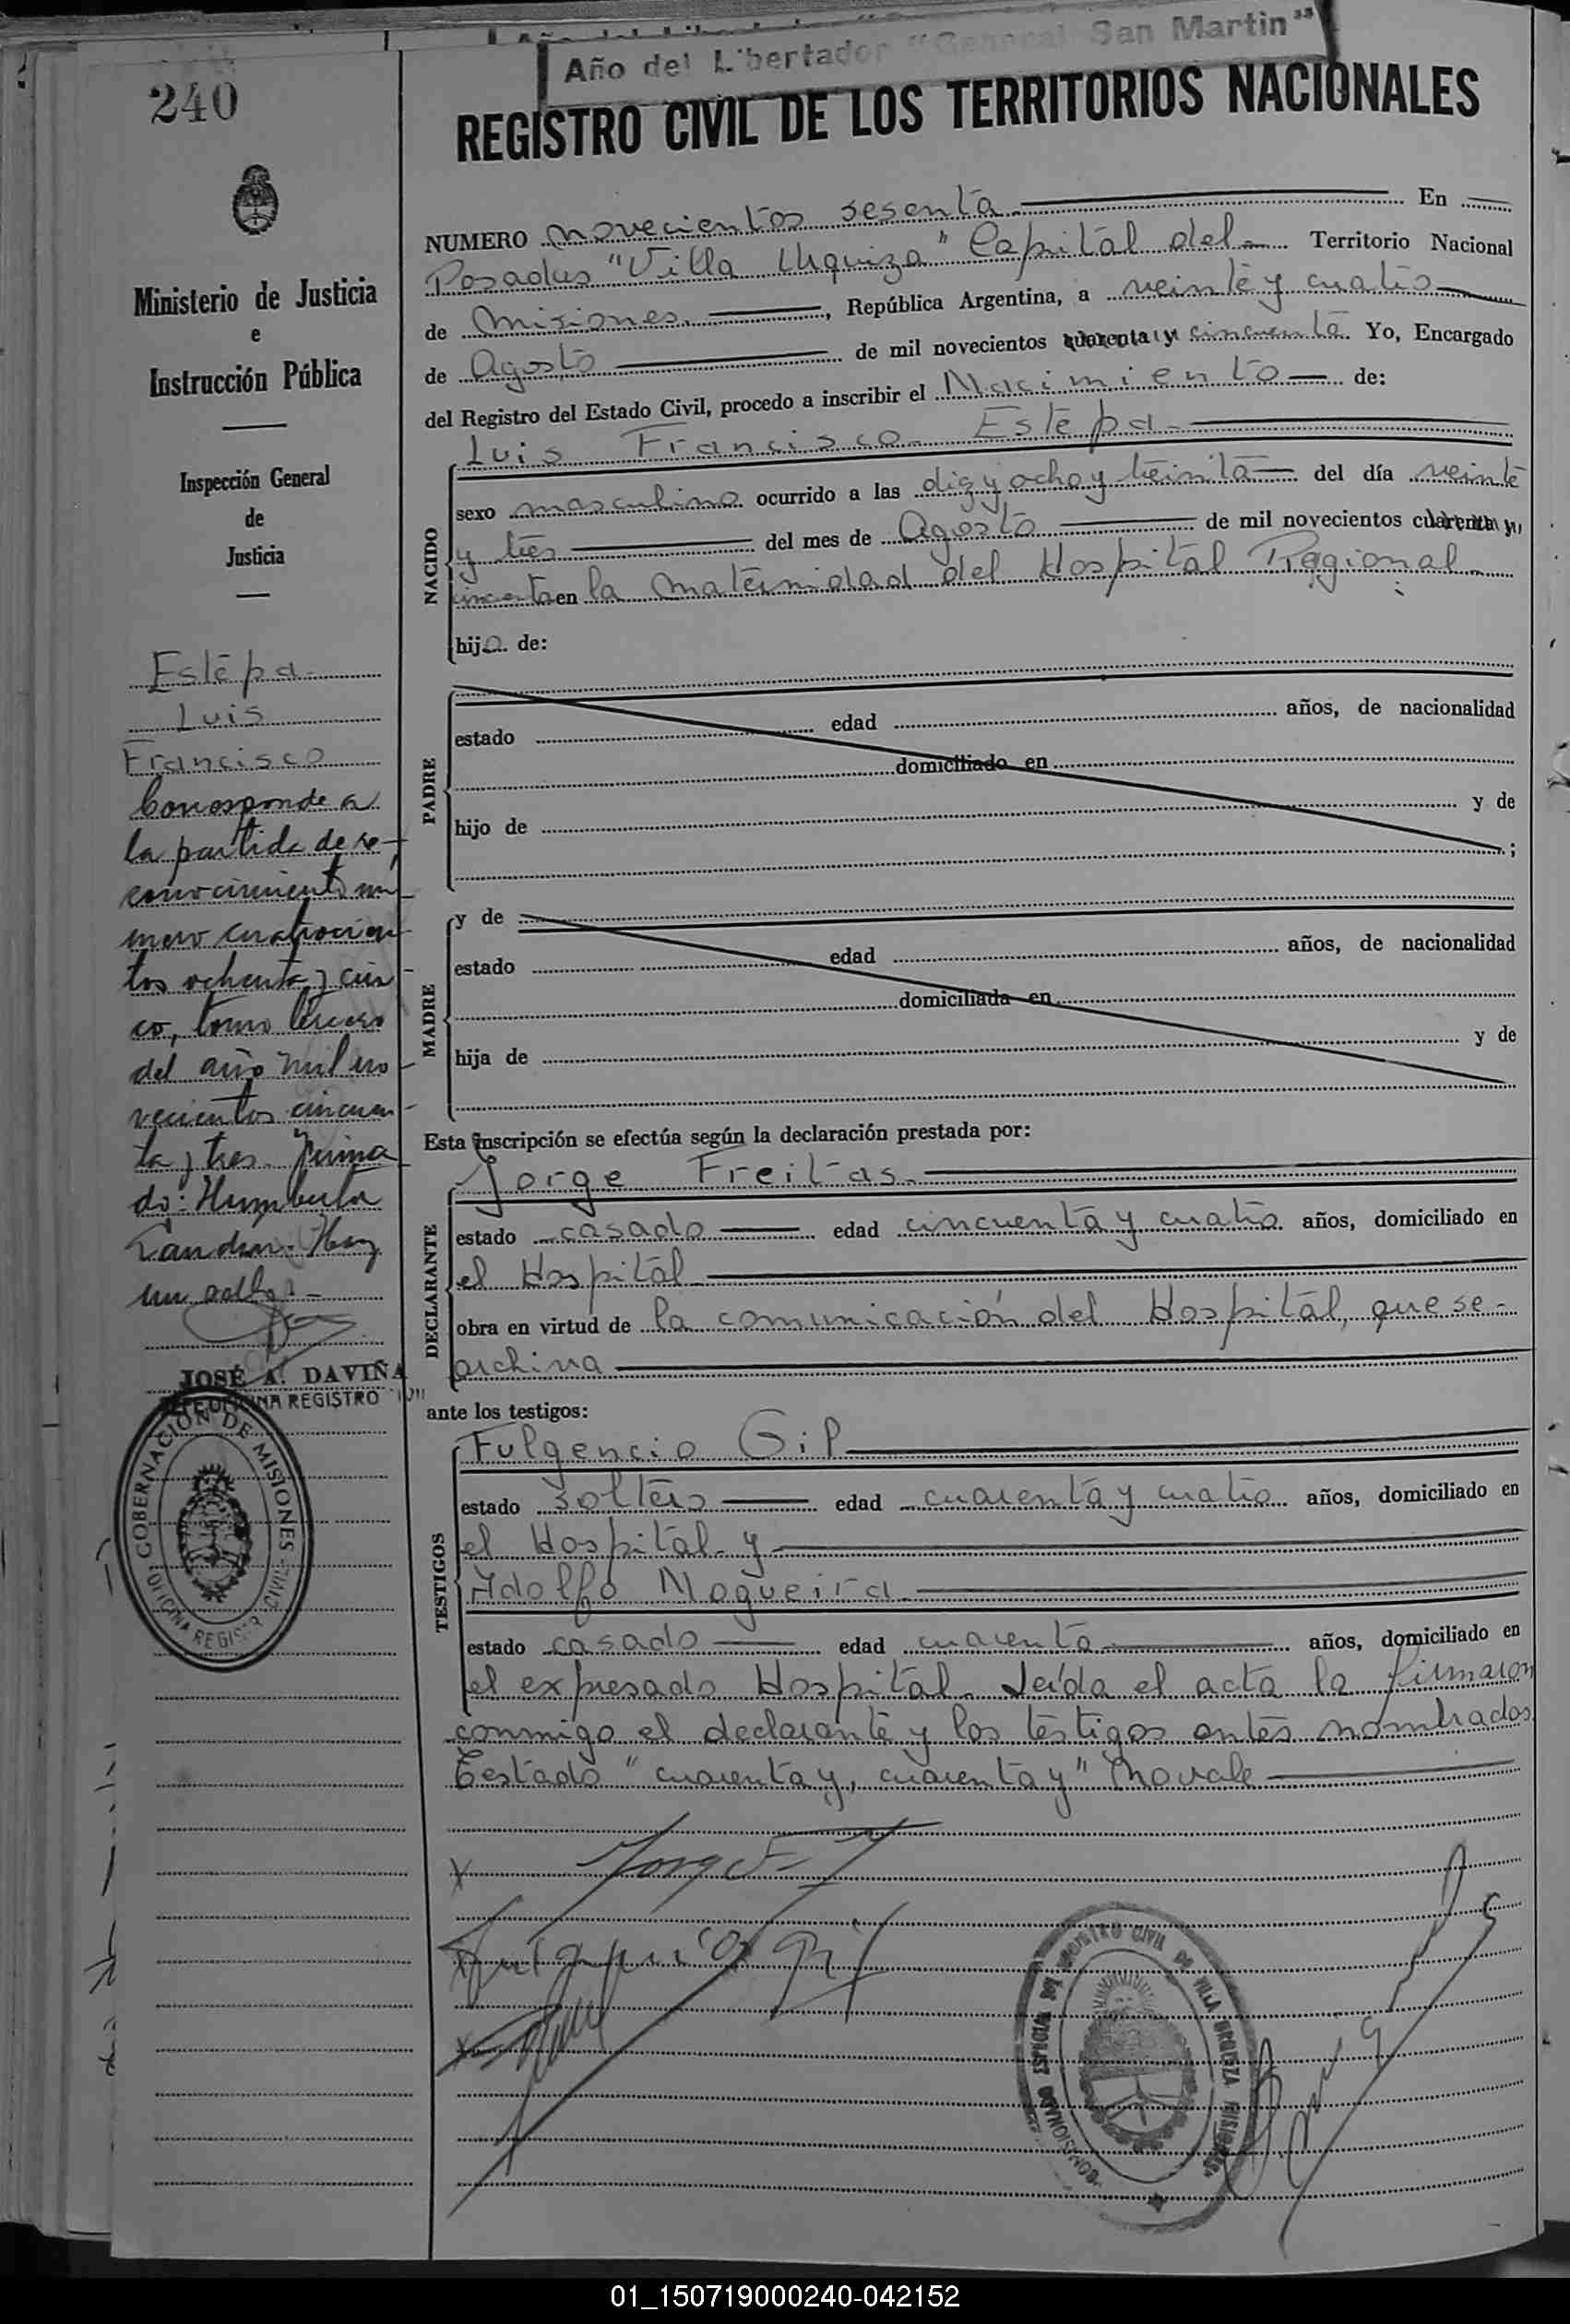 Año del Libertador "General San Martin"
240
REGISTRO CIVIL DE LOS TERRITORIOS NACIONALES
Ministerio de Justicia
e
Instrucción Pública
Inspección General
de
Justicia
Estepa
Luis
Francisco
Corresponde a
la partida de re-
conocimiento nú
mero cuatrocien
tos ochenta y cin
co, tomo tercero
del año mil no
vecientos cincuen-
ta y tres. Firma
do: Humberto
Hay
un sello.-
JOSÉ A. DAVIÑA
JEFE OFICINA REGISTRO CIVIL
GOBERNACION DE MISIONES
OFICINA REGISTRO CIVIL
NUMERO novecientos sesenta En
Posadas "Villa Urquiza" Capital del Territorio Nacional
de Misiones, República Argentina, a veinte y cuatro
de Agosto de mil novecientos cuarenta y cincuenta. Yo, Encargado
del Registro del Estado Civil, procedo a inscribir el Nacimiento de:
Luis Francisco Estepa
NACIDO
sexo masculino ocurrido a las diez y ocho y treinta del día veinte
y tres del mes de Agosto de mil novecientos cuarenta y
cincuenta en la maternidad del Hospital Regional
hijo de:
PADRE
estado edad años, de nacionalidad
domiciliado en
hijo de y de
;
MADRE
y de
estado edad años, de nacionalidad
domiciliada en
hija de y de
Esta inscripción se efectúa según la declaración prestada por:
DECLARANTE
Jorge Freitas
estado casado edad cincuenta y cuatro años, domiciliado en
el Hospital
obra en virtud de la comunicación del Hospital, que se
archiva
ante los testigos:
TESTIGOS
Fulgencio Gil
estado soltero edad cuarenta y cuatro años, domiciliado en
el Hospital y
Adolfo Nogueira
estado casado edad cuarenta años, domiciliado en
el expresado Hospital. Leída el acta la firmaron
conmigo el declarante y los testigos antes nombrados.
Testado "cuarenta y, cuarenta y" No vale
COMISIONADO ESPECIAL DEL REGISTRO CIVIL DE VILLA URQUIZA MISIONES
01_150719000240-042152